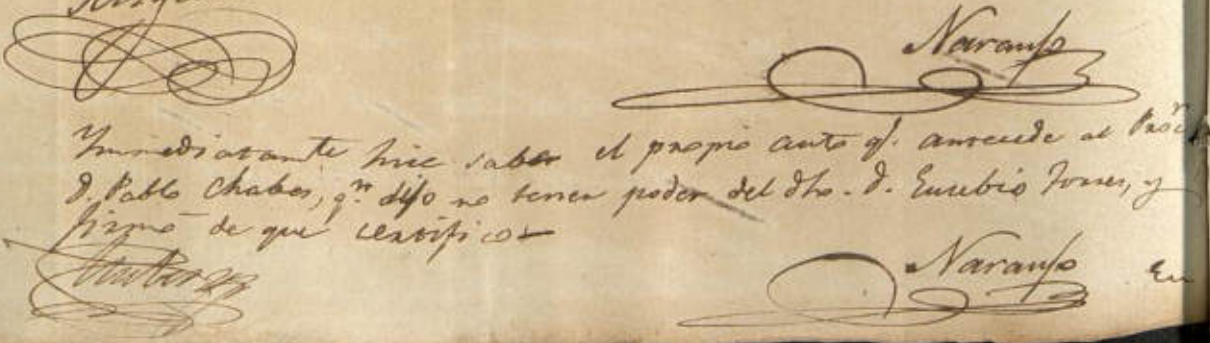 Naranjo
Inmediatamte. hice saber el propio auto q. antecede al Proc.r
D. Pablo Chabes, q.n dijo no tener poder del dho. D. Eusebio Torres, y
firmó de que certifico
Naranjo
En